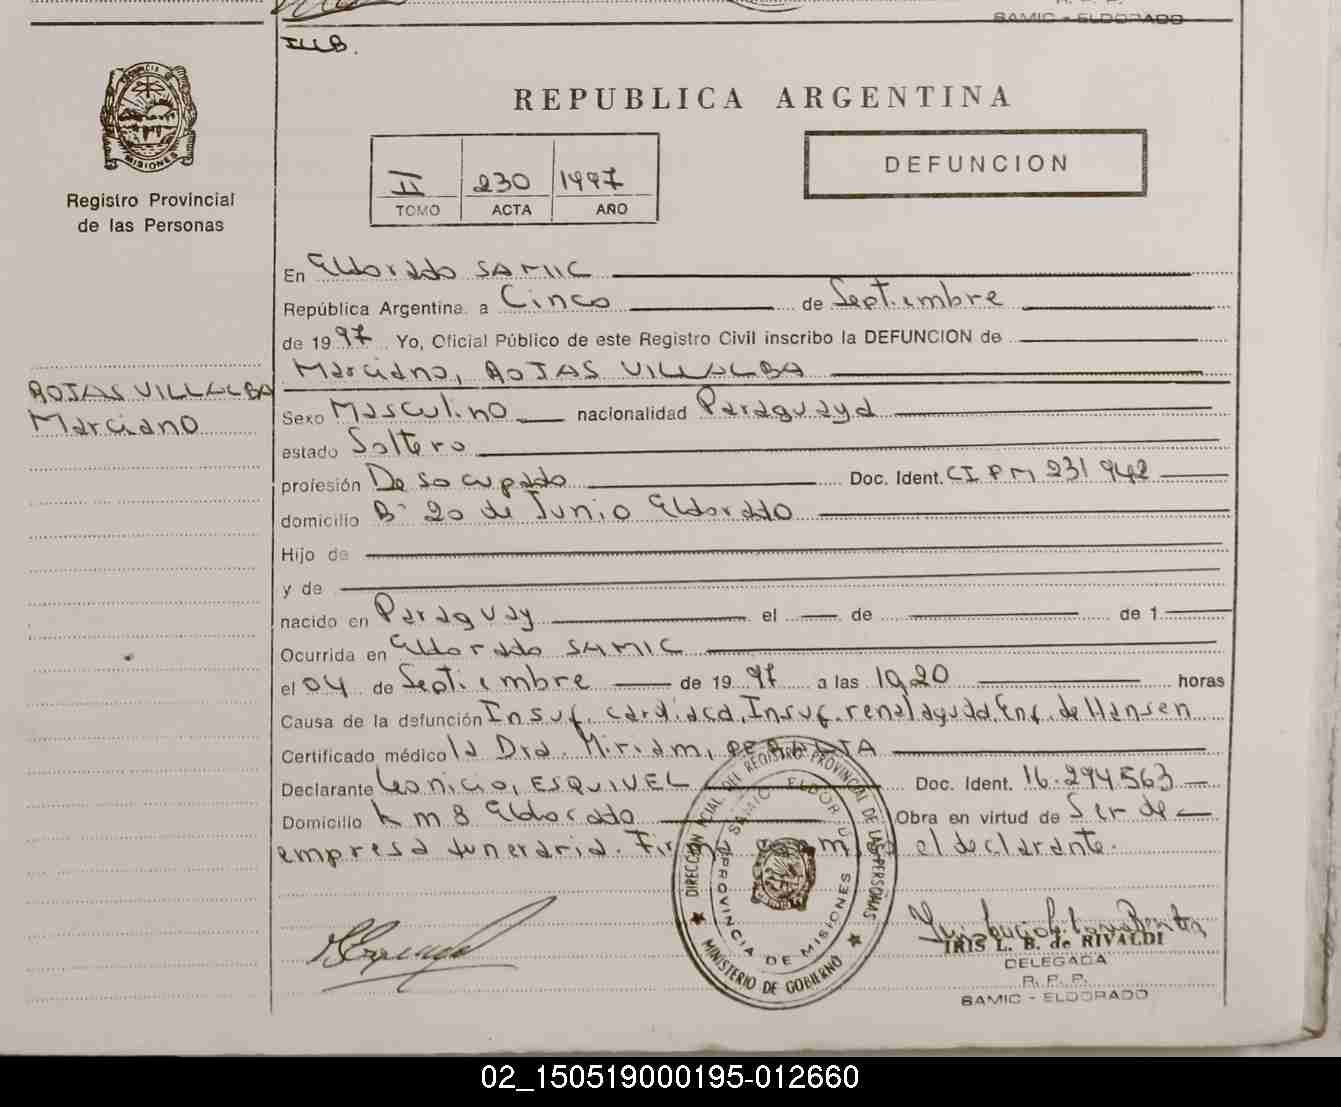 R. P. P.
SAMIC - ELDORADO
PROVINCIA DE
MISIONES
Registro Provincial
de las Personas
ROJAS VILLALBA
Marciano
REPUBLICA ARGENTINA
II 230 1997
TOMO ACTA AÑO
DEFUNCION
En Eldorado SAMIC
República Argentina. a Cinco de Septiembre
de 1997 Yo, Oficial Público de este Registro Civil inscribo la DEFUNCION de
Marciano, ROJAS VILLALBA
Sexo Masculino nacionalidad Paraguaya
estado Soltero
profesión Desocupado Doc. Ident. CI PM 231 942
domicilio B· 20 de Junio Eldorado
Hijo de
y de
nacido en Paraguay el de de 1
Ocurrida en Eldorado SAMIC
el 04 de Septiembre de 1997 a las 19,20 horas
Causa de la defunción Insuf. cardiaca. Insuf. renal aguda Enf. de Hansen
Certificado médico la Dra. Miriam, PERALTA
Declarante Leonicio, ESQUIVEL Doc. Ident. 16.294563
Domicilio Km 8 Eldorado Obra en virtud de Ser de
empresa funeraria. Firma el declarante.
DIRECCION DEL REGISTRO PROVINCIAL DE LAS PERSONAS
SAMIC ELDORADO
PROVINCIA DE MISIONES
MINISTERIO DE GOBIERNO
IRIS L. B. de RIVALDI
DELEGADA
R. P. P.
SAMIC - ELDORADO
02_150519000195-012660